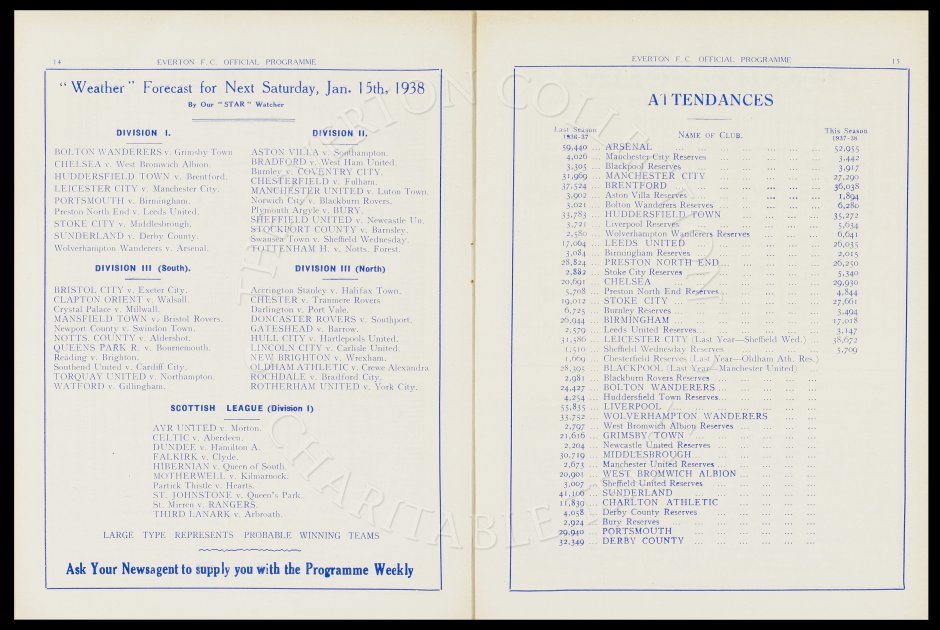 14
EVERTON F.C. OFFICIAL PROGRAMME
"Weather" Forecast for Next Saturday, Jan. 15th, 1938
By Our "STAR" Watcher
DIVISION I.
BOLTON WANDERERS v. Grimsby Town
CHELSEA v. West Bromwich Albion.
HUDDERSFIELD TOWN v. Brentford.
LEICESTER CITY v. Manchester City.
PORTSMOUTH v. Birmingham.
Preston North End v. Leeds United.
STOKE CITY v. Middlesbrough.
SUNDERLAND v. Derby County.
Wolverhampton Wanderers v. Arsenal.
DIVISION II.
ASTON VILLA v. Southampton.
BRADFORD v. West Ham United.
Burnley v. COVENTRY CITY.
CHESTERFIELD v. Fulham.
MANCHESTER UNITED v. Luton Town.
Norwich City v. Blackburn Rovers.
Plymouth Argyle v. BURY.
SHEFFIELD UNITED v. Newcastle Un.
STOCKPORT COUNTY v. Barnsley.
Swansea Town v. Sheffield Wednesday.
TOTTENHAM H. v. Notts. Forest.
DIVISION III (South).
BRISTOL CITY v. Exeter City.
CLAPTON ORIENT v. Walsall.
Crystal Palace v. Millwall.
MANSFIELD TOWN v. Bristol Rovers.
Newport County v. Swindon Town.
NOTTS. COUNTY v. Aldershot.
QUEENS PARK R. v. Bournemouth.
Reading v. Brighton.
Southend United v. Cardiff City.
TORQUAY UNITED v. Northampton.
WATFORD v. Gillingham.
DIVISION III (North)
Accrington Stanley v. Halifax Town.
CHESTER v. Tranmere Rovers
Darlington v. Port Vale.
DONCASTER ROVERS v. Southport.
GATESHEAD v. Barrow.
HULL CITY v. Hartlepools United.
LINCOLN CITY v. Carlisle United.
NEW BRIGHTON v. Wrexham.
OLDHAM ATHLETIC v. Crewe Alexandra
ROCHDALE v. Bradford City.
ROTHERHAM UNITED v. York City.
SCOTTISH LEAGUE (Division I)
AYR UNITED v. Morton.
CELTIC v. Aberdeen.
DUNDEE v. Hamilton A.
FALKIRK v. Clyde.
HIBERNIAN v. Queen of South.
MOTHERWELL v. Kilmarnock.
Partick Thistle v. Hearts.
ST. JOHNSTONE v. Queen's Park.
St. Mirren v. RANGERS.
THIRD LANARK v. Arbroath.
LARGE TYPE REPRESENTS PROBABLE WINNING TEAMS
Ask Your Newsagent to supply you with the Programme Weekly
EVERTON F.C. OFFICIAL PROGRAMME
15
ATTENDANCES
Last Season 1936-37 NAME OF CLUB. This Season 1937-38
59,440 ... ARSENAL ... 52,955
4,026 ... Manchester City Reserves ... 3,442
3,305 ... Blackpool Reserves ... 3,917
31,969 ... MANCHESTER CITY ... 27,290
37,524 ... BRENTFORD ... 36,038
3,902 ... Aston Villa Reserves ... 1,894
3,021 ... Bolton Wanderers Reserves ... 6,280
33,783 ... HUDDERSFIELD TOWN ... 35,272
3,721 ... Liverpool Reserves ... 5,634
2,580 ... Wolverhampton Wanderers Reserves ... 6,641
17,064 ... LEEDS UNITED ... 26,035
3,084 ... Birmingham Reserves ... 2,015
28,824 ... PRESTON NORTH END ... 26,250
2,882 ... Stoke City Reserves ... 5,340
20,691 ... CHELSEA ... 29,930
5,708 ... Preston North End Reserves ... 4,844
19,012 ... STOKE CITY ... 27,661
6,725 ... Burnley Reserves ... 3,494
26,944 ... BIRMINGHAM ... 17,018
2,579 ... Leeds United Reserves ... 3,147
31,586 ... LEICESTER CITY (Last Year—Sheffield Wed.) ... 38,672
1,510 ... Sheffield Wednesday Reserves ... 5,709
1,669 ... Chesterfield Reserves (Last Year—Oldham Ath. Res.)
28,395 ... BLACKPOOL (Last Year—Manchester United)
2,981 ... Blackburn Rovers Reserves
24,427 ... BOLTON WANDERERS
4,254 ... Huddersfield Town Reserves
55,835 ... LIVERPOOL
33,752 ... WOLVERHAMPTON WANDERERS
2,797 ... West Bromwich Albion Reserves
21,616 ... GRIMSBY TOWN
2,204 ... Newcastle United Reserves
30,719 ... MIDDLESBROUGH
2,673 ... Manchester United Reserves
20,901 ... WEST BROMWICH ALBION
3,007 ... Sheffield United Reserves
41,106 ... SUNDERLAND
11,839 ... CHARLTON ATHLETIC
4,058 ... Derby County Reserves
2,924 ... Bury Reserves
29,940 ... PORTSMOUTH
32,349 ... DERBY COUNTY